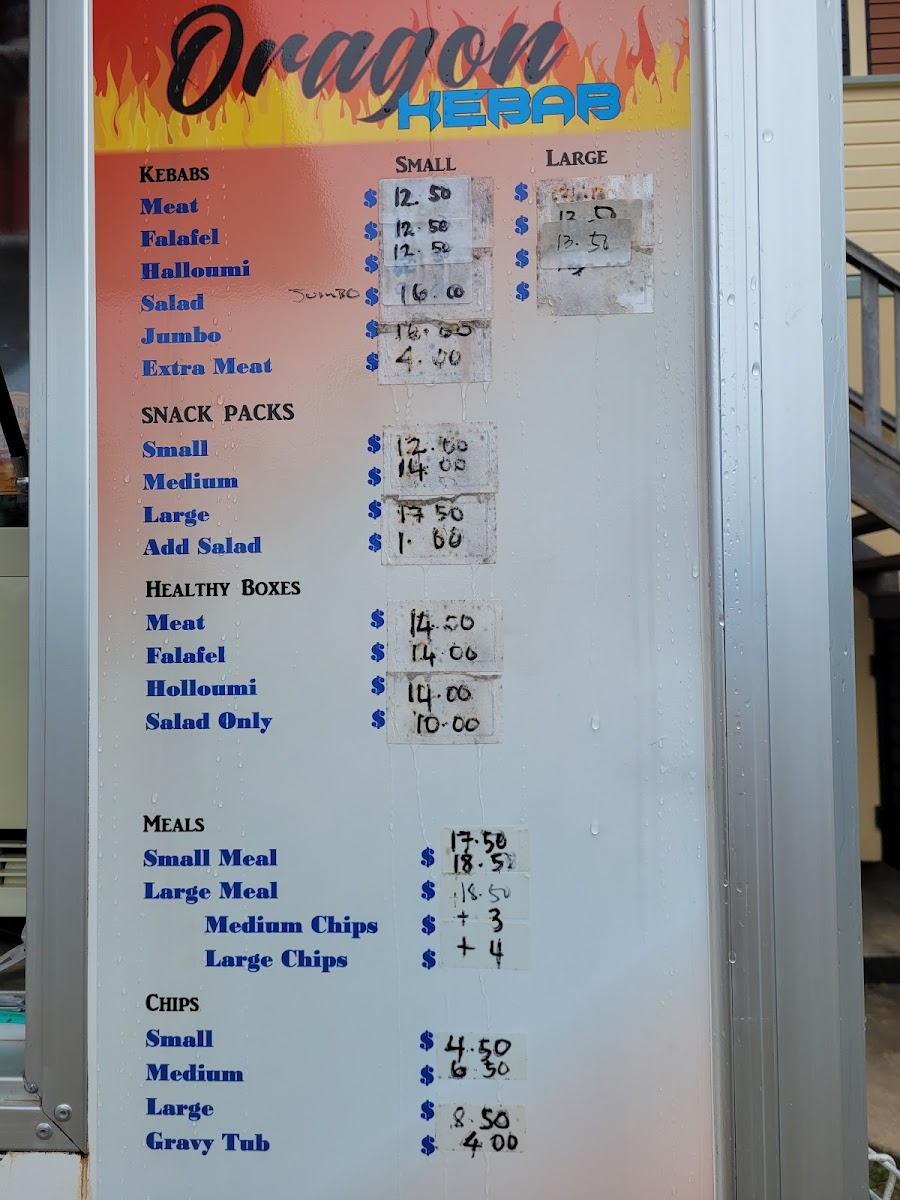 Dragon
KEBAB
KEBABS SMALL LARGE
Meat $ 12.50 $
Falafel $ 12.50 $ 13.50
Halloumi $ 12.50 $
Salad JUMBO $ 16.00 $
Jumbo $ 16.00
Extra Meat $ 4.00
SNACK PACKS
Small $ 12.00
Medium $ 14.00
Large $ 17.50
Add Salad $ 1.00
HEALTHY BOXES
Meat $ 14.50
Falafel $ 14.00
Holloumi $ 14.00
Salad Only $ 10.00
MEALS
17.50
Small Meal $ 18.50
Large Meal $ 18.50
Medium Chips $ + 3
Large Chips $ + 4
CHIPS
Small $ 4.50
Medium $ 6.50
Large $ 8.50
Gravy Tub $ 4.00